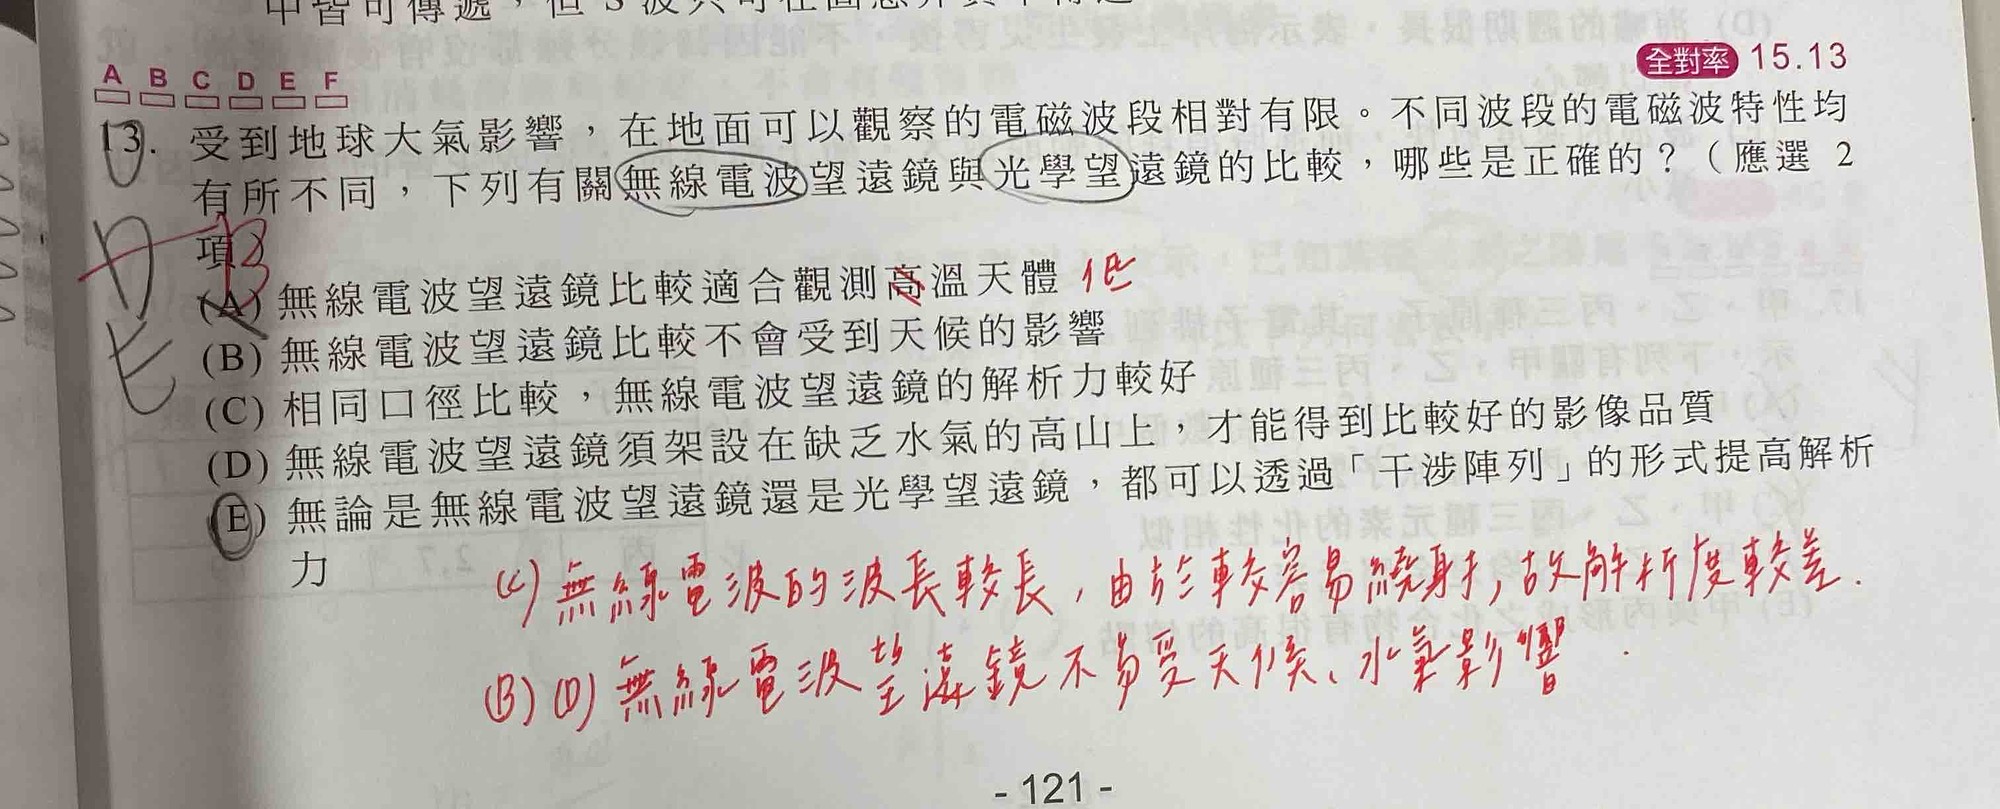 全對率 15.13
A B C D E F
13. 受到地球大氣影響，在地面可以觀察的電磁波段相對有限。不同波段的電磁波特性均
有所不同，下列有關無線電波望遠鏡與光學望遠鏡的比較，哪些是正確的？（應選 2
項）
(A) 無線電波望遠鏡比較適合觀測高溫天體 低
(B) 無線電波望遠鏡比較不會受到天候的影響
(C) 相同口徑比較，無線電波望遠鏡的解析力較好
(D) 無線電波望遠鏡須架設在缺乏水氣的高山上，才能得到比較好的影像品質
(E) 無論是無線電波望遠鏡還是光學望遠鏡，都可以透過「干涉陣列」的形式提高解析
力
D B
E
(C) 無線電波的波長較長，由於較容易繞射，故解析度較差.
(B)(D) 無線電波望遠鏡不易受天候、水氣影響.
- 121 -